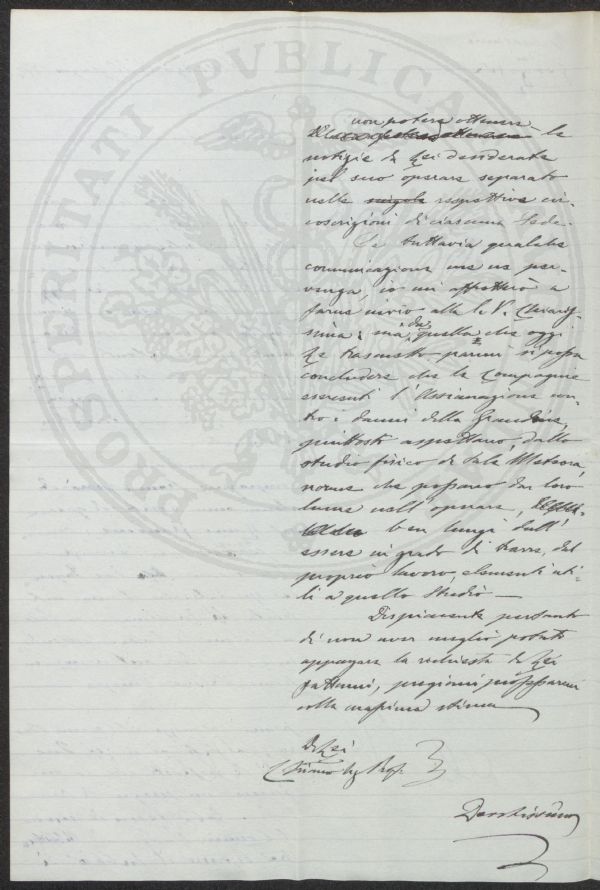 PROSPERITATI PVBLICAE
non potere ottenere
le
notizie da Lei desiderate
pel suo operare separato
nelle singole respettive cir-
coscrizioni di ciascuna Sede.
Se tuttavia qualche
comunicazione me ne per-
venga, io mi affretterò a
farne invio alla S. V. Chiaris-
sima; ma da quella che oggi
Le trasmetto parmi si possa
concludere che le Compagnie
esercenti l'Assicurazione con-
tro i danni della Grandine,
piuttosto aspettano, dallo
studio fisico di tale Meteora,
norme che possano dar loro
lume nell'operare,
ben lungi dall'
essere in grado di trarre, dal
proprio lavoro, elementi uti-
li a quello Studio —
Dispiacente pertanto
di non aver meglio potuto
appagare la richiesta da Lei
fattami, pregiomi professarmi
colla massima stima
Di Lei
Chiarmo Sig. Prof.
Devotissimo